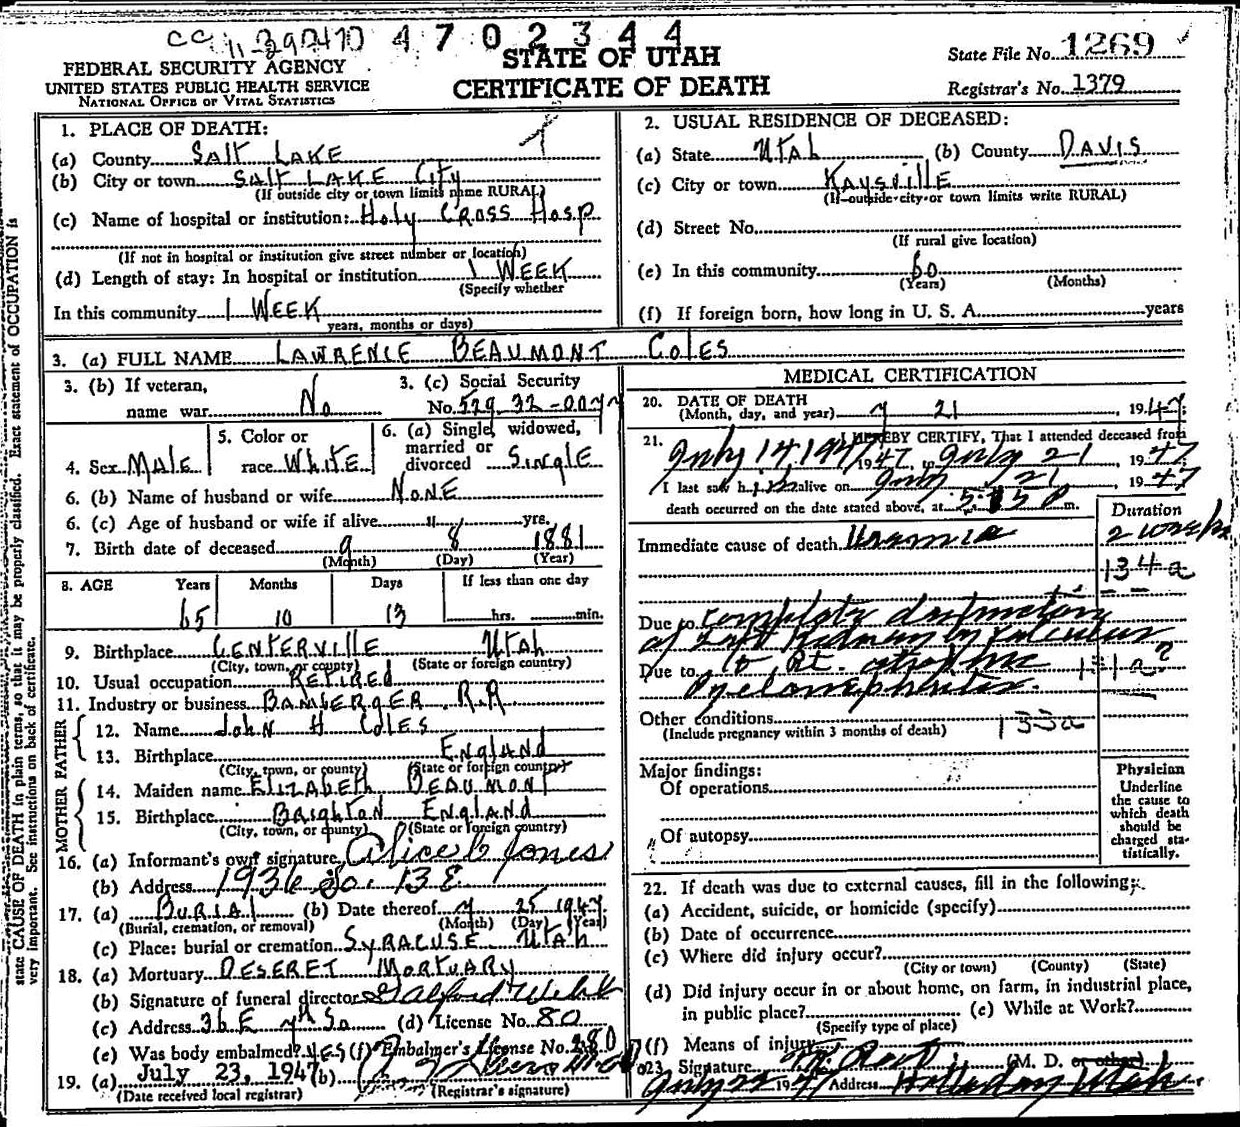 4702344
STATE OF UTAH
CERTIFICATE OF DEATH
FEDERAL SECURITY AGENCY
UNITED STATES PUBLIC HEALTH SERVICE
NATIONAL OFFICE OF VITAL STATISTICS
State File No. 1269
Registrar's No. 1379
state CAUSE OF DEATH in plain terms, so that it may be properly classified. Exact statement of OCCUPATION is
very important. See instructions on back of certificate.
1. PLACE OF DEATH:
(a) County SALT LAKE
(b) City or town SALT LAKE CITY
(If outside city or town limits name RURAL)
(c) Name of hospital or institution: Holy CROSS Hosp
(If not in hospital or institution give street number or location)
(d) Length of stay: In hospital or institution 1 WEEK
(Specify whether
In this community 1 WEEK
years, months or days)
2. USUAL RESIDENCE OF DECEASED:
(a) State UTAh (b) County DAVIS
(c) City or town KAYSVILLE
(If outside city or town limits write RURAL)
(d) Street No.
(If rural give location)
(e) In this community 60
(Years) (Months)
(f) If foreign born, how long in U. S. A. years
3. (a) FULL NAME LAWRENCE BEAUMONT COLES
3. (b) If veteran,
name war No
3. (c) Social Security
No. 529-32-
4. Sex MALE
5. Color or
race WHITE
6. (a) Single, widowed,
married or
divorced SINGLE
6. (b) Name of husband or wife NONE
6. (c) Age of husband or wife if alive yrs.
7. Birth date of deceased 9 8 1881
(Month) (Day) (Year)
8. AGE Years Months Days If less than one day
65 10 13 hrs. min.
9. Birthplace CENTERVILLE UTAh
(City, town, or county) (State or foreign country)
10. Usual occupation RETIRED
11. Industry or business BAMBERGER R.R
FATHER
12. Name John H COLES
13. Birthplace ENGLAND
(City, town, or county) (State or foreign country)
MOTHER
14. Maiden name ELIZABETH BEAUMONT
15. Birthplace BRIGHTON ENGLAND
(City, town, or county) (State or foreign country)
16. (a) Informant's own signature Alice C Jones
(b) Address 1936 So. 13 E
17. (a) BURIAL (b) Date thereof 7 25 1947
(Burial, cremation, or removal) (Month) (Day) (Year)
(c) Place: burial or cremation SYRACUSE UTAh
18. (a) Mortuary DESERET MORTUARY
(b) Signature of funeral director
(c) Address 36 E 7th So (d) License No. 80
(e) Was body embalmed? YES (f) Embalmer's License No. 280
19. (a) July 23, 1947 (b)
(Date received local registrar) (Registrar's signature)
MEDICAL CERTIFICATION
20. DATE OF DEATH
(Month, day, and year) 7 21, 1947
21. I HEREBY CERTIFY, That I attended deceased from
July 14, 1947 1947, to July 21, 1947
I last saw him alive on July 21 1947
death occurred on the date stated above, at m.
Duration
Immediate cause of death Uremia 2 weeks
134a
Due to Complete destruction
of Left Kidney by calculus
Due to Rt. atrophic 131a?
Pyelonephritis.
Other conditions 133a
(Include pregnancy within 3 months of death)
Major findings:
Of operations
Of autopsy
Physician
Underline
the cause to
which death
should be
charged sta-
tistically.
22. If death was due to external causes, fill in the following:
(a) Accident, suicide, or homicide (specify)
(b) Date of occurrence
(c) Where did injury occur?
(City or town) (County) (State)
(d) Did injury occur in or about home, on farm, in industrial place,
in public place? (e) While at Work?
(Specify type of place)
(f) Means of injury
23. Signature (M. D. or other)
July 22 1947 Address Holladay Utah